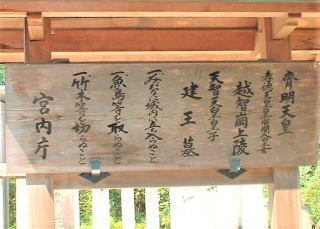 斉明天皇
孝徳天皇皇后間人皇女
越智崗上陵
天智天皇皇子
建王墓
一、みだりに域内に立入らぬこと
一、魚鳥等を取らぬこと
一、竹木等を切らぬこと
宮内庁